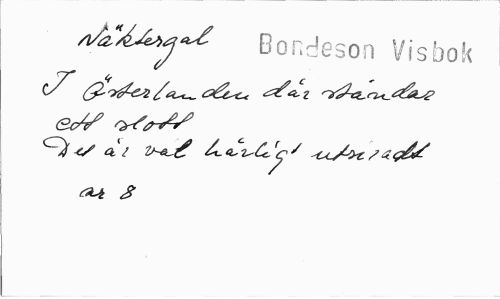 Näktergal
Bondeson Visbok
I Österlanden där ständar
ett slott
Det är väl härligt utsiradt
nr 8